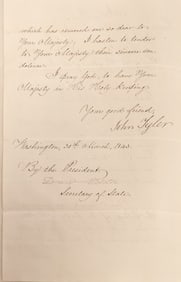 which has ensured so dear to
Your Majesty; I hasten to tender
to Your Majesty their sincere con-
dolence.
I pray God, to have Your
Majesty in His Holy Keeping.
Your good friend,
John Tyler
Washington, 30th March, 1843.
By the President
Secretary of State.